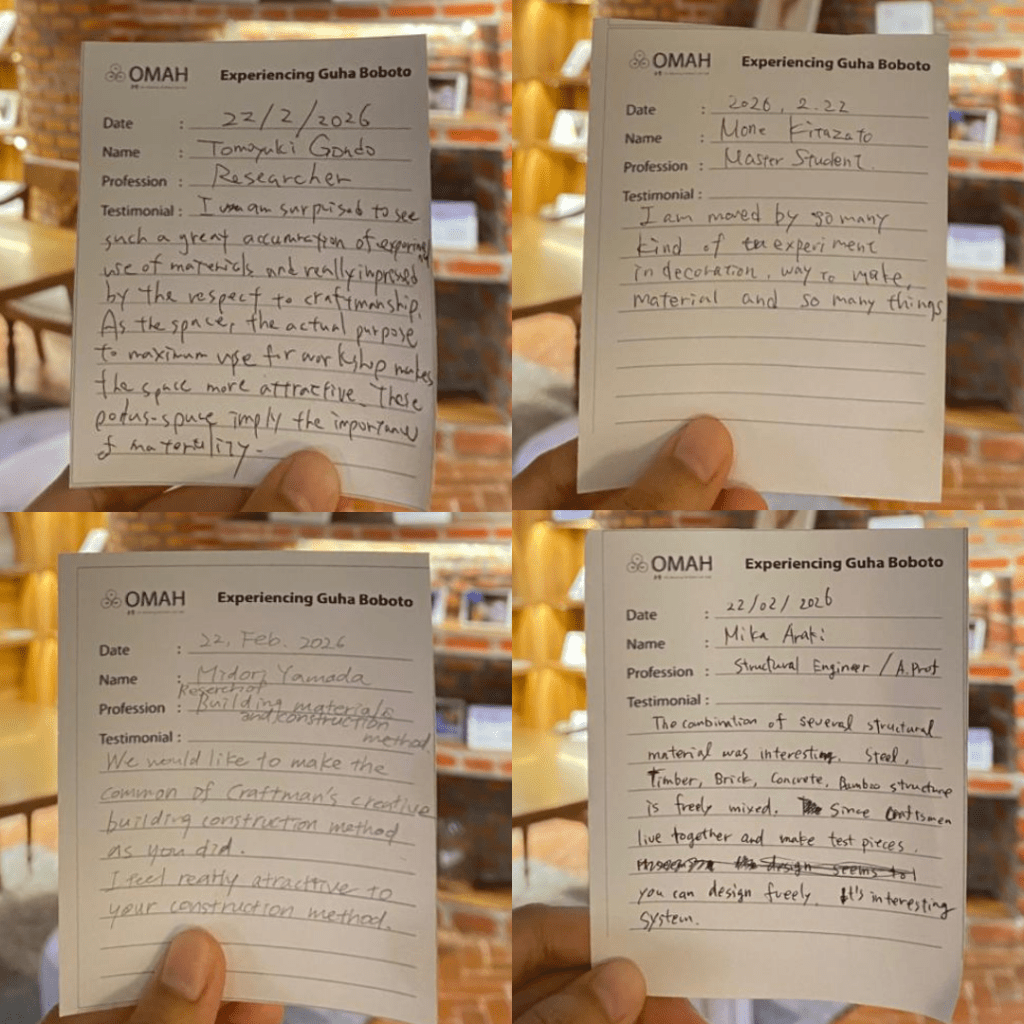 OMAH
Experiencing Guha Boboto
Date : 22/2/2026
Name : Tomoyuki Gondo
Profession : Researcher
Testimonial : I am surprised to see
such a great accumration of exporing
use of materials and really impressed
by the respect to craftmanship.
As the space, the actual purpose
to maximum use for workshop makes
the space more attractive. These
space imply the importance
of materiality.
OMAH
Experiencing Guha Boboto
Date : 2026, 2.22
Name : Mone Kitazato
Profession : Master Student.
Testimonial :
I am moved by so many
kind of experiment
in decoration, way to make,
material and so many things
OMAH
Experiencing Guha Boboto
Date : 22, Feb. 2026
Name : Midori Yamada
Profession : Reserch of
Building materials
and construction
method
Testimonial :
We would like to make the
common of Craftman's creative
building construction method
as you did.
I feel really atractive to
your construction method.
OMAH
Experiencing Guha Boboto
Date : 22/02/2026
Name : Mika Araki
Profession : Structural Engineer / A.Prof
Testimonial :
The combination of several structural
material was interesting. Steel,
Timber, Brick, Concrete, Bamboo structure
is freely mixed. Since craftsmen
live together and make test pieces.
design seems to
you can design freely. It's interesting
system.